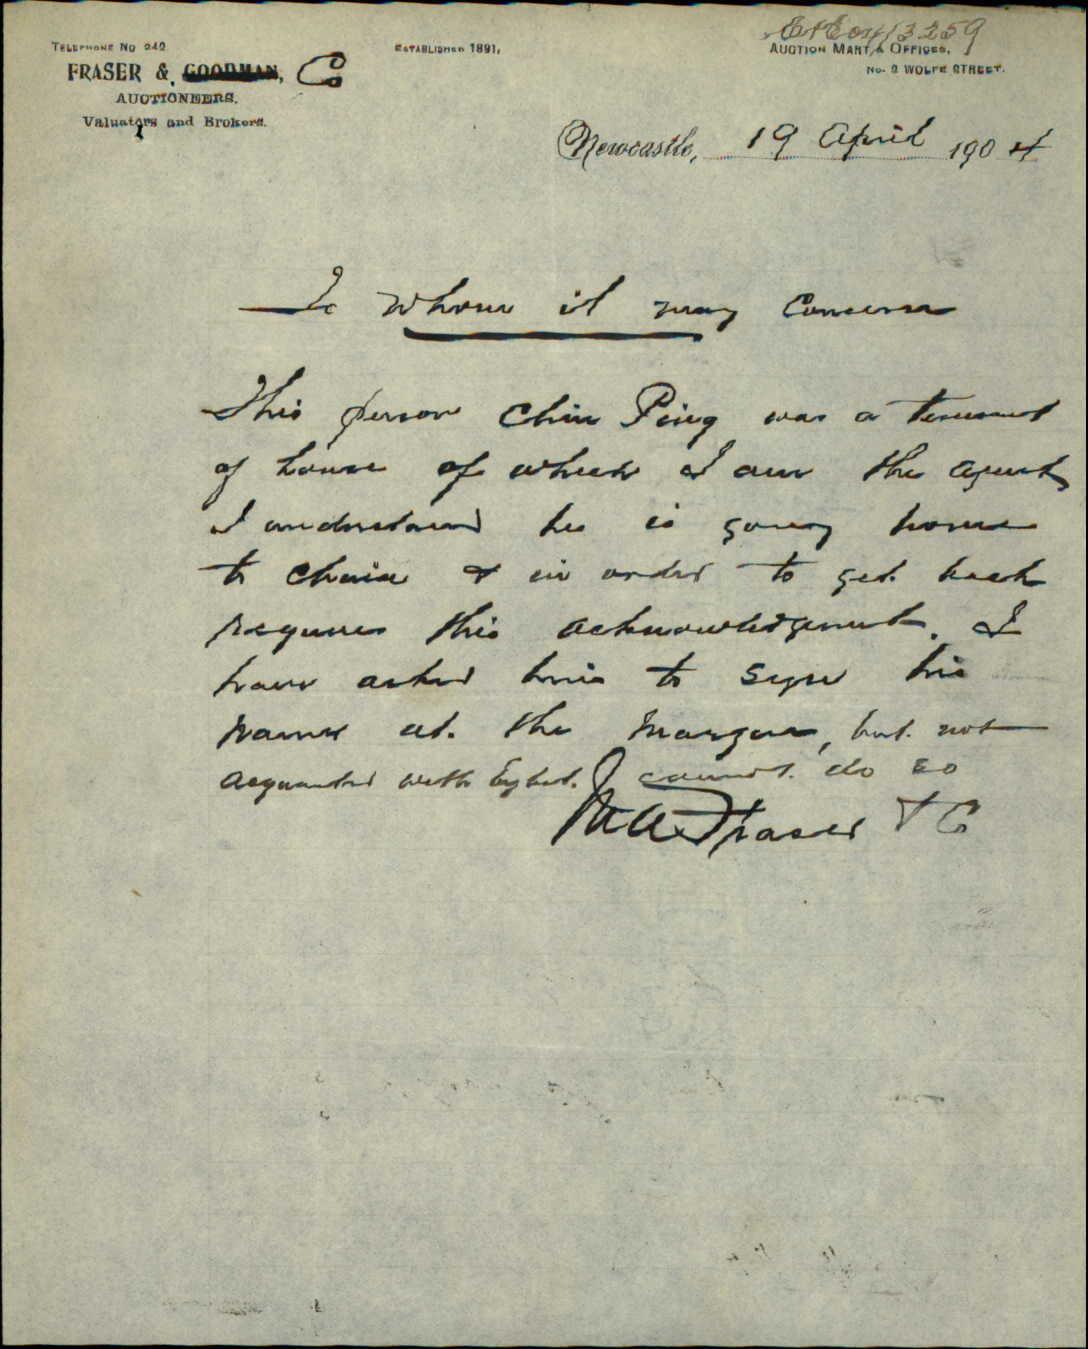 13259
TELEPHONE NO 242
ESTABLISHED 1891,
AUCTION MART, & OFFICES,
FRASER & GOODMAN, Co
No. 2 WOLFE STREET.
AUCTIONEERS.
Valuators and Brokers.
Newcastle, 19 April 1904
To whom it may Concern
This person Chin Ping was a tenant
of house of which I am the agent
I understand he is going home
to China & in order to get back
requires this acknowledgment. I
have asked him to sign his
name at the margin, but not
acquainted with cannot do so
Fraser & Co